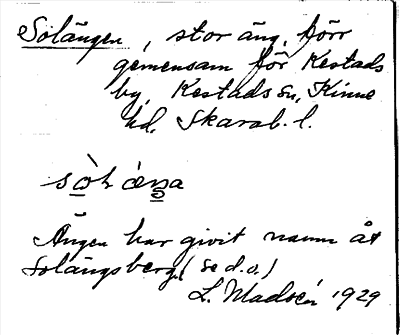 Solängen, stor äng, förr
gemensam för Kestads
by, Kestads sn, Kinne
hd. Skarab. l.
Ängen har givit namn åt
Solängsberg, (se d.o.)
L. Madsén 1929